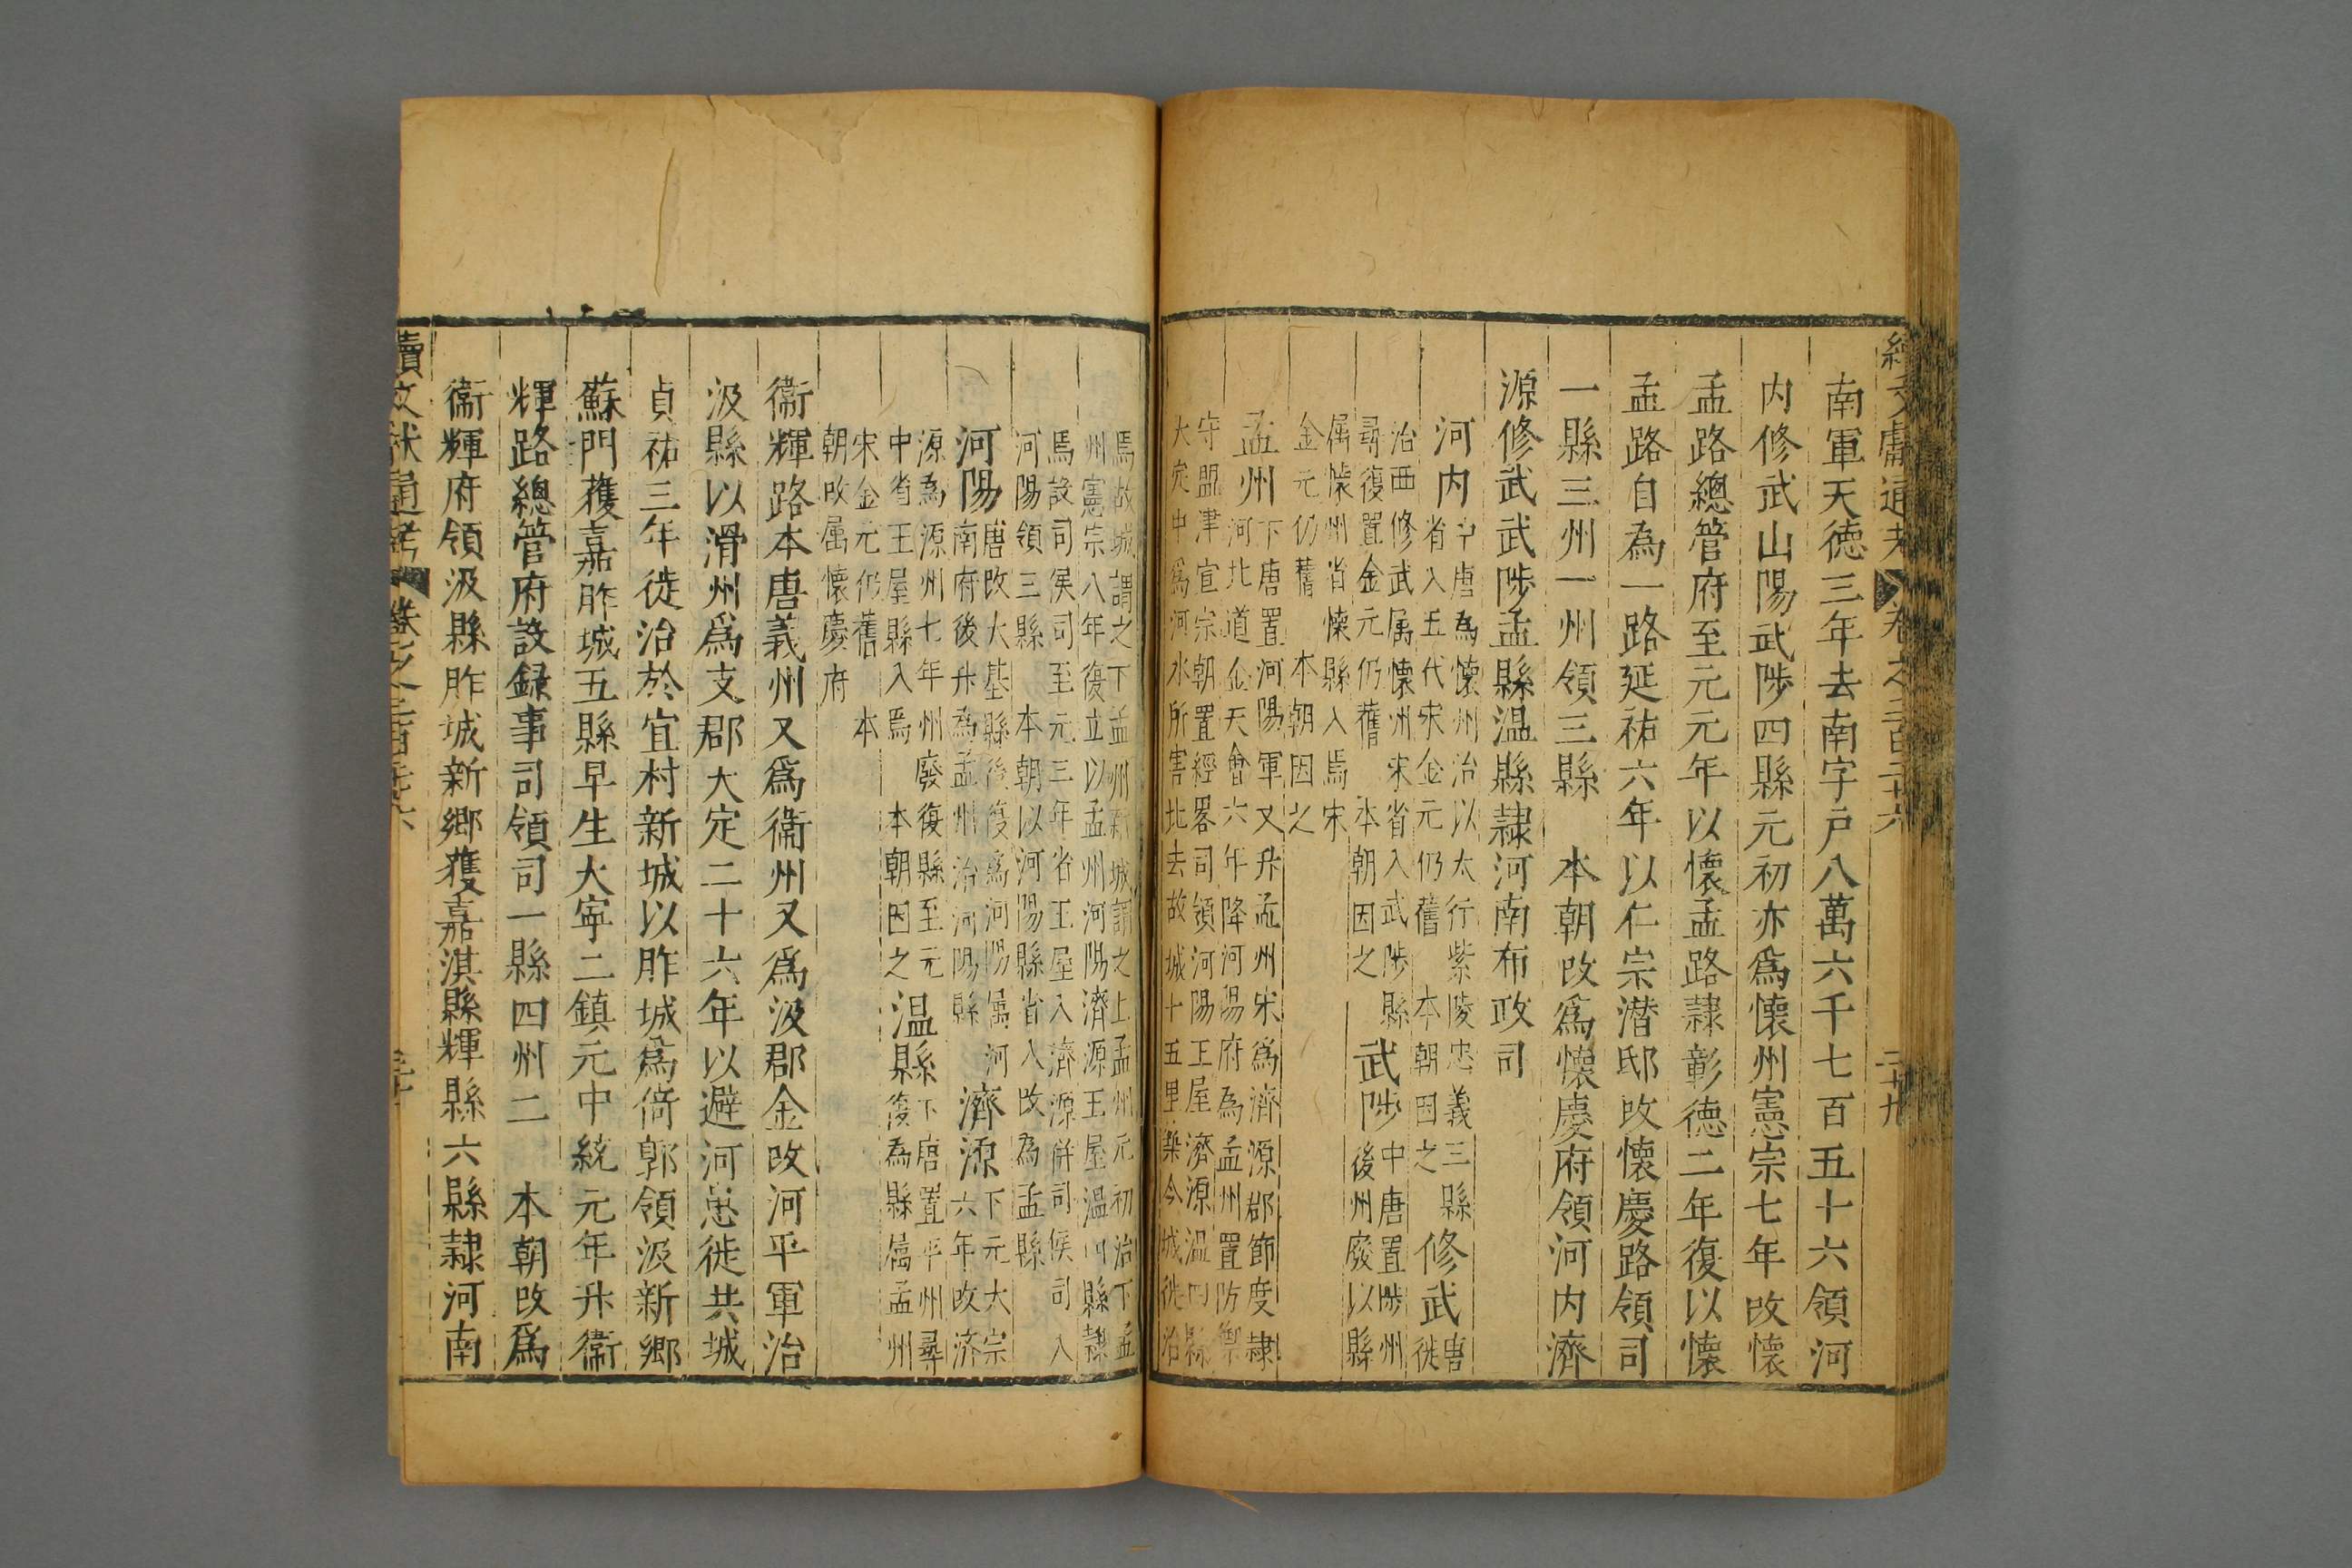 續文獻通考 卷之二百二十六 二十九
南軍天德三年去南字戸八萬六千七百五十六領河
内修武山陽武陟四縣元初亦爲懷州憲宗七年改懷
孟路總管府至元元年以懷孟路隸彰德二年復以懷
孟路自為一路延祐六年以仁宗潛邸改懷慶路領司
一縣三州一州領三縣　本朝改爲懷慶府領河内濟
源修武武陟孟縣温縣隸河南布政司
河内
中唐為懷州治以太行紫陵忠義三縣
省入五代宋金元仍舊　本朝因之
修武
唐徙
治西修武属懷州宋省入武陟縣
尋復置金元仍舊　本朝因之
武陟
中唐置陟州
後州廢以縣
属懷州省懷縣入焉宋
金元仍舊　本朝因之
孟州
下唐置河陽軍又升孟州宋爲濟源郡節度隸
河北道金天會六年降河陽府為孟州置防禦
守盟津宣宗朝置經畧司領河陽王屋濟源温四縣
大定中爲河水所害北去故城十五里築今城徙治
焉故城謂之下孟州新城謂之上孟州元初治下孟
州憲宗八年復立以孟州河陽濟源王屋温四縣隸
焉設司侯司至元三年省王屋入濟源併司候司入
河陽領三縣　本朝以河陽縣省入改為孟縣
河陽
唐改大基縣後復爲河陽属河
南府後升為孟州治河陽縣
濟源
下元太宗
六年改济
源為源州七年州廢復縣至元
中省王屋縣入焉　本朝因之
温縣
下唐置平州尋
復為縣属孟州
宋金元仍舊　本
朝改属懷慶府
衞輝路本唐義州又爲衞州又爲汲郡金改河平軍治
汲縣以滑州爲支郡大定二十六年以避河患徙共城
貞祐三年徙治於宜村新城以胙城爲倚郭領汲新鄉
蘇門獲嘉胙城五縣早生大寧二鎮元中統元年升衞
輝路總管府設録事司領司一縣四州二　本朝改爲
衞輝府領汲縣胙城新鄉獲嘉淇縣輝縣六縣隸河南
續文獻通考 卷之二百二十六 三十